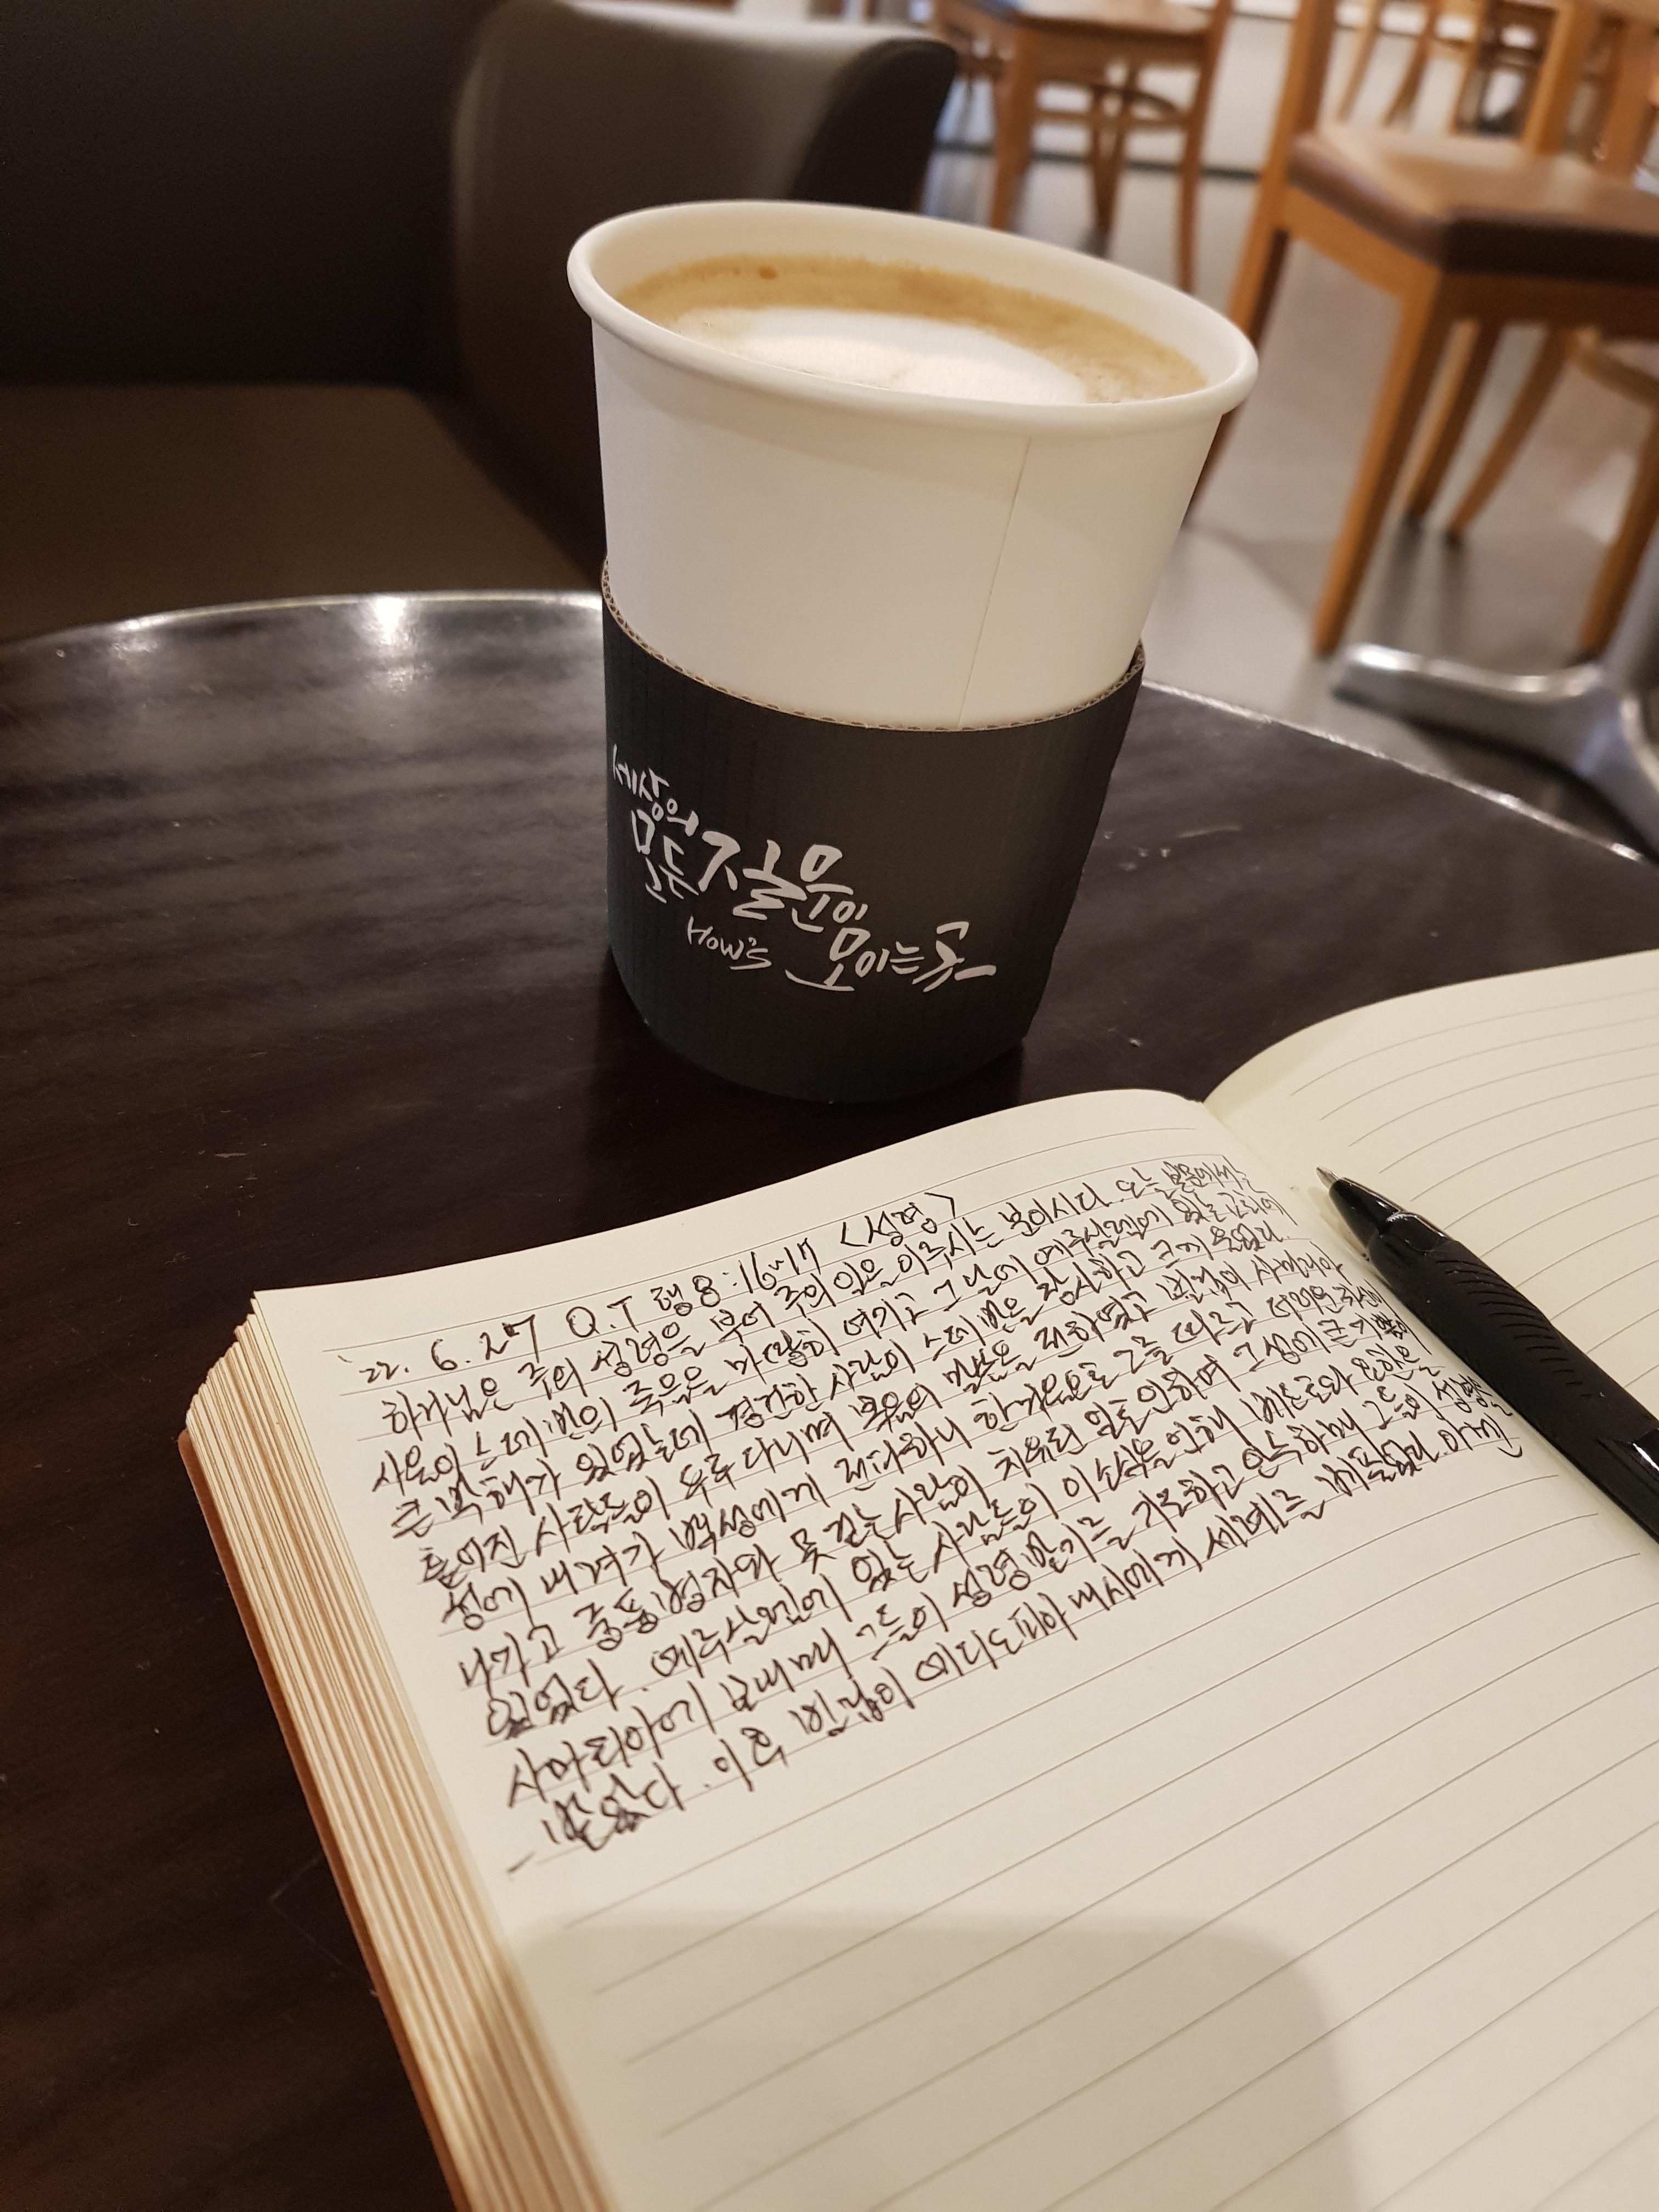 세상의
모든 젊음이
How's 모이는 곳
'22. 6. 27 Q.T 행8:16~17 <성령>
하나님은 주의 성령을 부어 주의 일을 이루시는 분이시다. 오늘 본문에서는
사울이 스데반의 죽음을 마땅히 여기고 그 날에 예루살렘에 있는 교회에
큰 박해가 있었는데 경건한 사람이 스데반을 장사하고 크게 울었다.
흩어진 사람들이 두루 다니며 복음의 말씀을 전하였고 빌립이 사마리아
성에 내려가 백성에게 전하니 한마음으로 그를 따르고 더러운 귀신이
나가고 중풍병자와 못 걷는 사람이 치유된 일로 인하여 그 성에 큰 기쁨이
있었다. 예루살렘에 있는 사람들이 이 소식을 인해 베드로와 요한을
사마리아에 보내매 그들이 성령받기를 기도하고 안수하매 그들이 성령을
받았다. 이후 빌립이 에디오피아 내시에게 세례를 베풀었다.